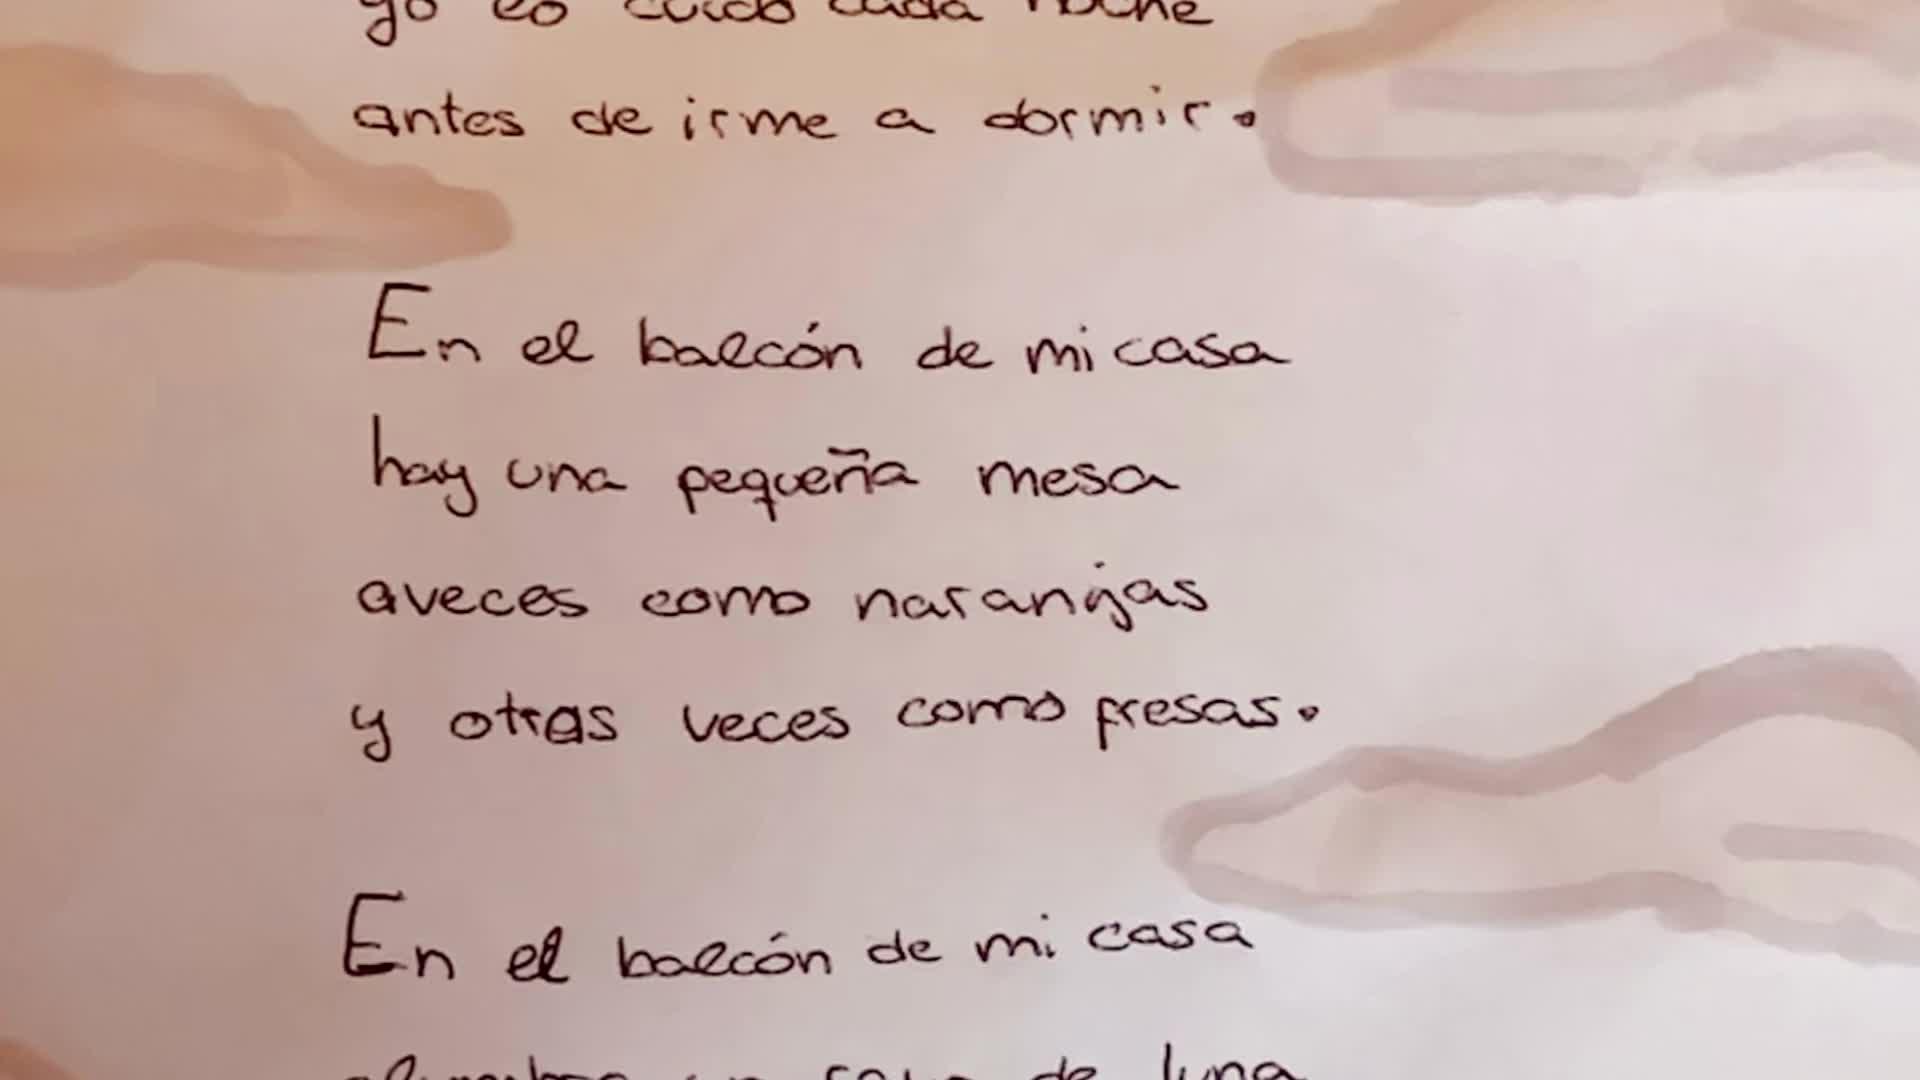 yo lo cuido cada noche
antes de irme a dormir.
En el balcón de mi casa
hay una pequeña mesa
aveces como naranjas
y otras veces como fresas.
En el balcón de mi casa
alumbra un rayo de luna